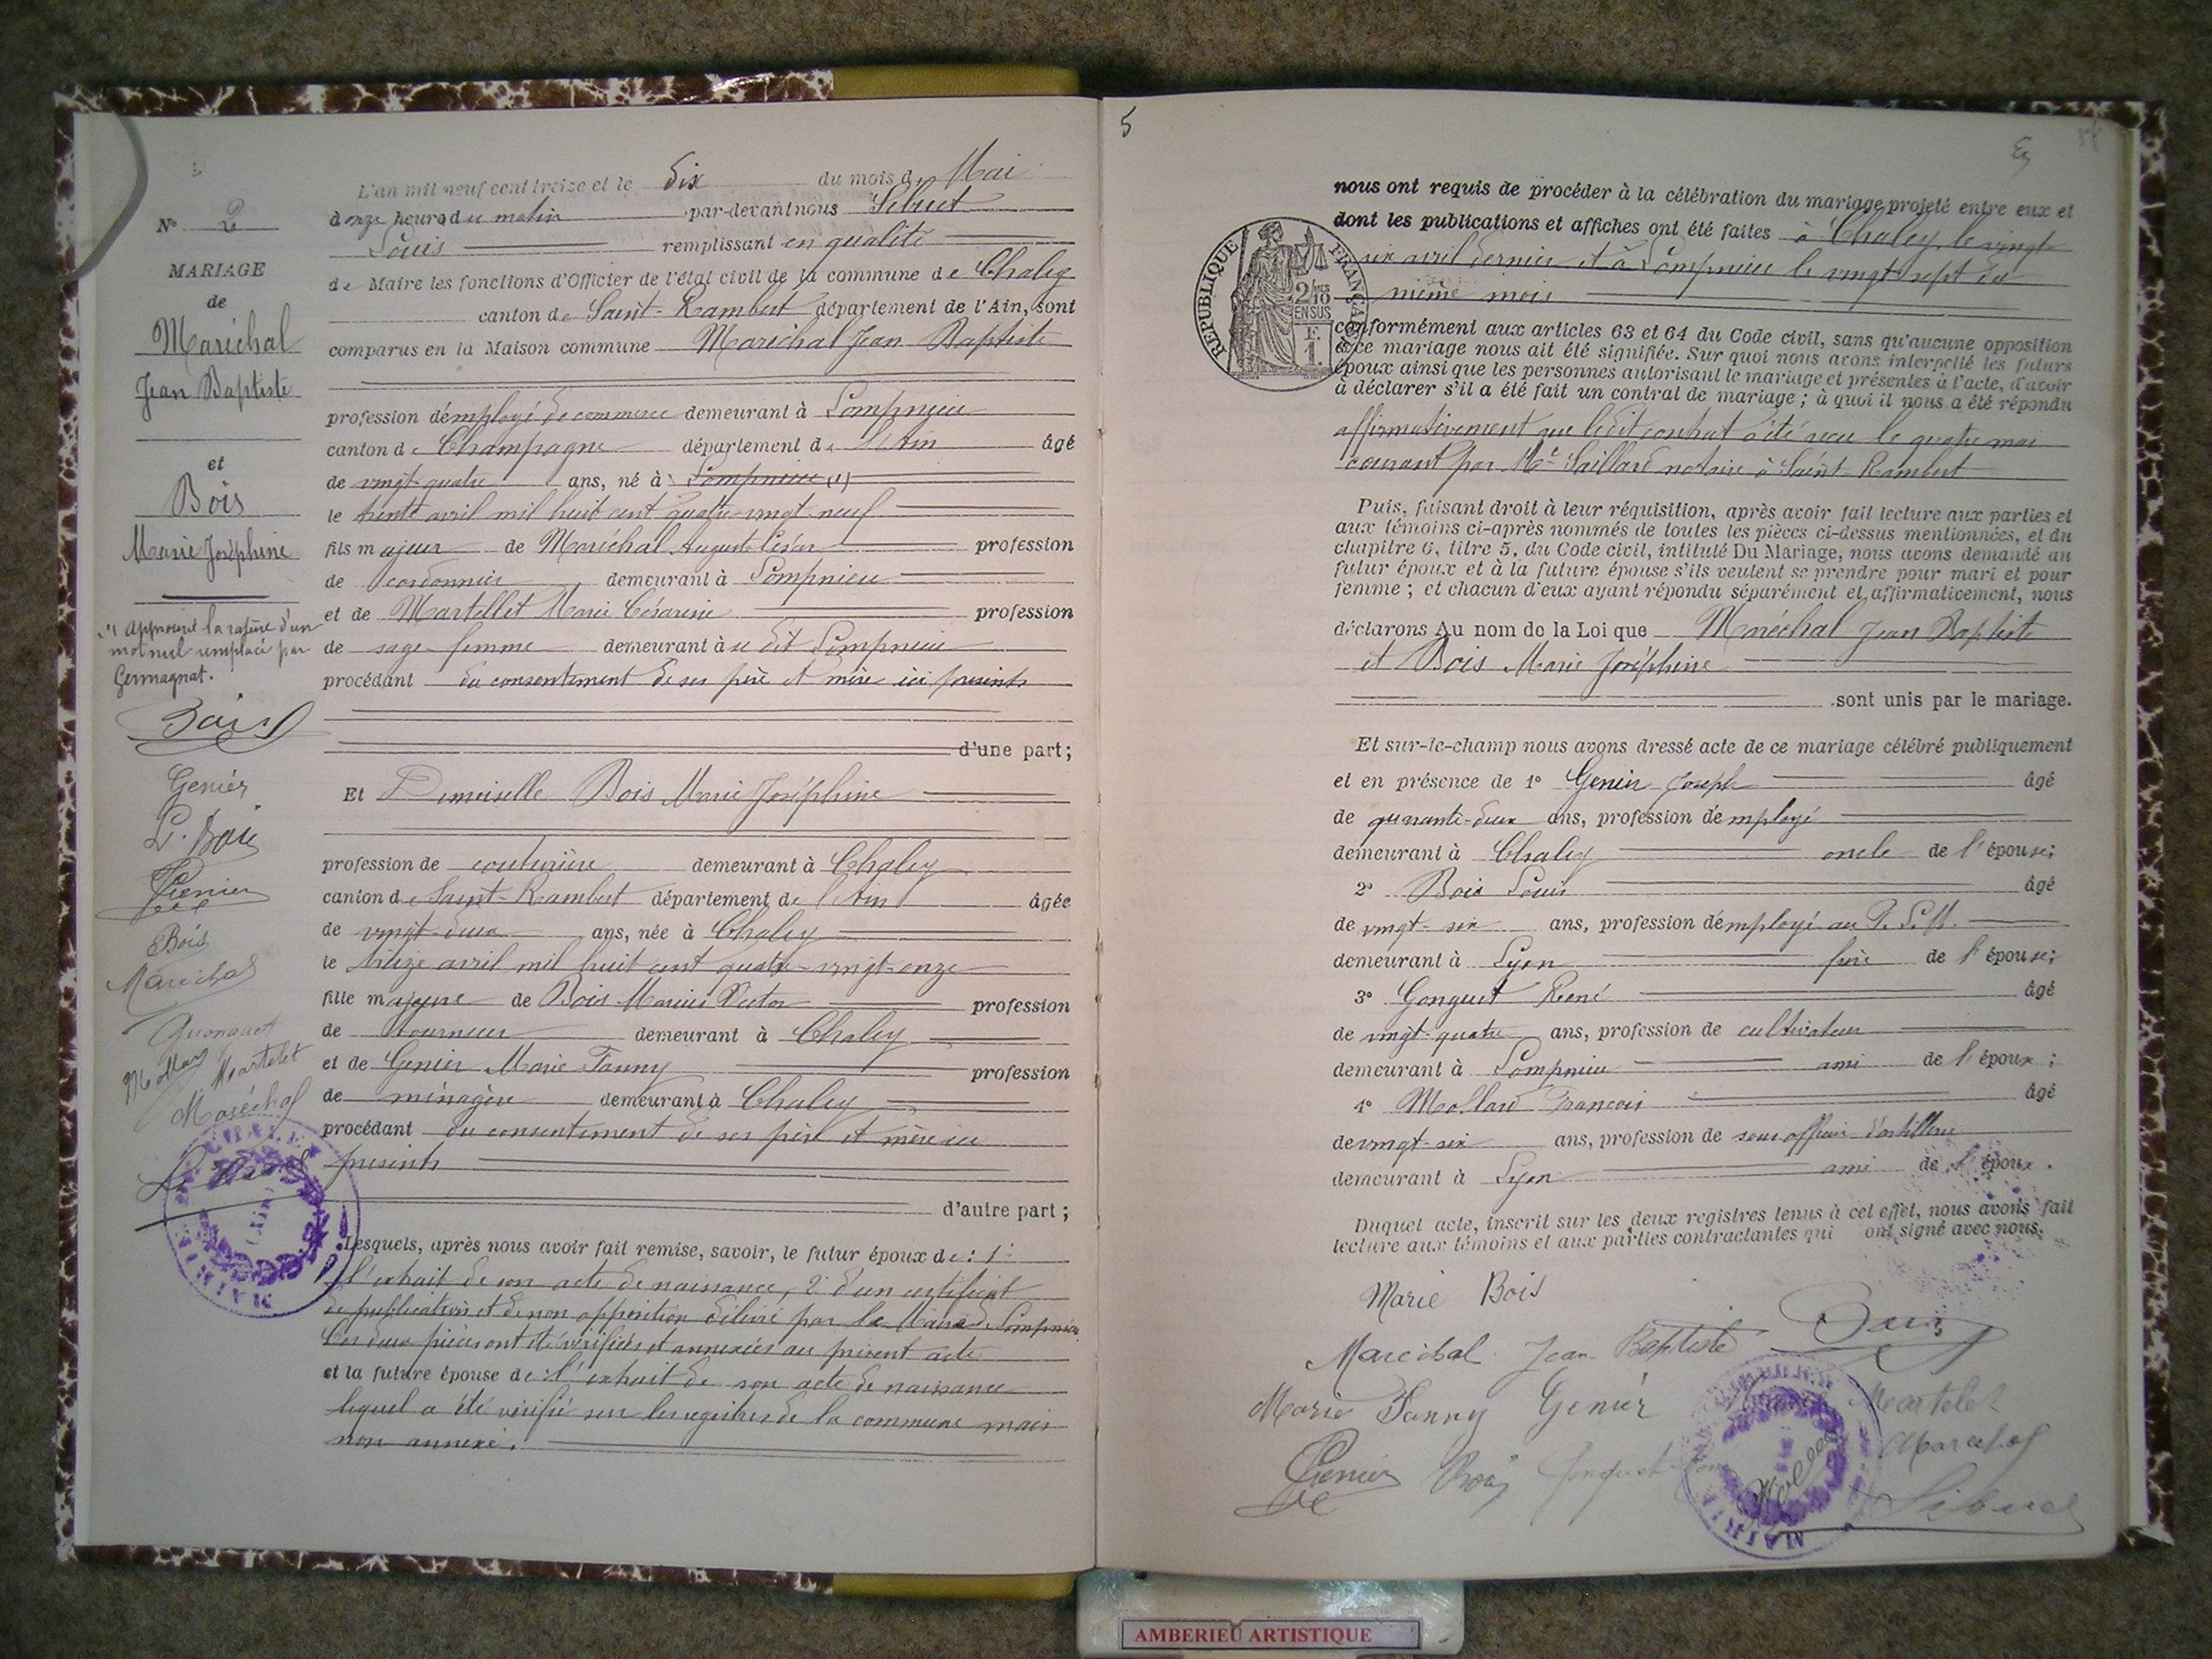 N° 2
MARIAGE
de
Maréchal
Jean Baptiste
et
Bois
Marie Joséphine
(1) Approuvé la rature d'un
mot nul remplacé par
Germagnat.
Bois
Genier
L. Bois
Genier
Bois
Maréchal
Gonguet
Mollard Martelet
Maréchal
L'an mil neuf cent treize et le dix du mois de Mai
à onze heures du matin par-devant nous Sibuet
Louis remplissant en qualité
de Maire les fonctions d'Officier de l'état civil de la commune de Chaley
canton de Saint-Rambert département de l'Ain, sont
comparus en la Maison commune Maréchal Jean Baptiste
profession d'employé de commerce demeurant à Lompnieu
canton de Champagne département de l'Ain âgé
de vingt-quatre ans, né à Lompnieu (1)
le trente avril mil huit cent quatre-vingt-neuf
fils majeur de Maréchal Auguste César profession
de cordonnier demeurant à Lompnieu
et de Martellet Marie Césarine profession
de sage-femme demeurant à u dit Lompnieu
procédant du consentement de ses père et mère ici présents
d'une part;
Et Demoiselle Bois Marie Joséphine
profession de couturière demeurant à Chaley
canton de Saint-Rambert département de l'Ain âgée
de vingt-deux ans, née à Chaley
le treize avril mil huit cent quatre-vingt-onze
fille majeure de Bois Marius Victor profession
de tourneur demeurant à Chaley
et de Genier Marie Fanny profession
de ménagère demeurant à Chaley
procédant du consentement de ses père et mère ici
présents
d'autre part;
Lesquels, après nous avoir fait remise, savoir, le futur époux de: 1°
l'extrait de son acte de naissance, 2° d'un certificat
de publication et de non opposition délivré par le Maire de Lompnieu
Ces deux pièces ont été vérifiées et annexées au présent acte
et la future épouse de: l'extrait de son acte de naissance
lequel a été vérifié sur les registres de la commune mais
non annexé.
5
REPUBLIQUE FRANÇAISE
2/10 EN SUS
F. 1.
nous ont requis de procéder à la célébration du mariage projeté entre eux et
dont les publications et affiches ont été faites à Chaley, le vingt
six avril dernier et à Lompnieu le vingt sept du
même mois
conformément aux articles 63 et 64 du Code civil, sans qu'aucune opposition
à ce mariage nous ait été signifiée. Sur quoi nous avons interpellé les futurs
époux ainsi que les personnes autorisant le mariage et présentes à l'acte, d'avoir
à déclarer s'il a été fait un contrat de mariage; à quoi il nous a été répondu
affirmativement que ledit contrat a été reçu le quatre mai
courant par Me Saillard notaire à Saint-Rambert
Puis, faisant droit à leur réquisition, après avoir fait lecture aux parties et
aux témoins ci-après nommés de toutes les pièces ci-dessus mentionnées, et du
chapitre 6, titre 5, du Code civil, intitulé Du Mariage, nous avons demandé au
futur époux et à la future épouse s'ils veulent se prendre pour mari et pour
femme; et chacun d'eux ayant répondu séparément et affirmativement, nous
déclarons Au nom de la Loi que Maréchal Jean Baptiste
et Bois Marie Joséphine
sont unis par le mariage.
Et sur-le-champ nous avons dressé acte de ce mariage célébré publiquement
et en présence de 1° Genier Joseph âgé
de quarante-deux ans, profession d'employé
demeurant à Chaley oncle de l'épouse;
2° Bois Louis âgé
de vingt-six ans, profession d'employé au P. L. M.
demeurant à Lyon frère de l'épouse;
3° Gonguet René âgé
de vingt-quatre ans, profession de cultivateur
demeurant à Lompnieu ami de l'époux;
4° Mollard François âgé
de vingt-six ans, profession de sous officier d'artillerie
demeurant à Lyon ami de l'époux.
Duquel acte, inscrit sur les deux registres tenus à cet effet, nous avons fait
lecture aux témoins et aux parties contractantes qui ont signé avec nous.
Marie Bois
Bois
Maréchal Jean Baptiste
Marie Fanny Genier Martelet
Maréchal
Genier Bois Gonguet
Mollard
Sibuet
MAIRIE
AMBERIEU ARTISTIQUE